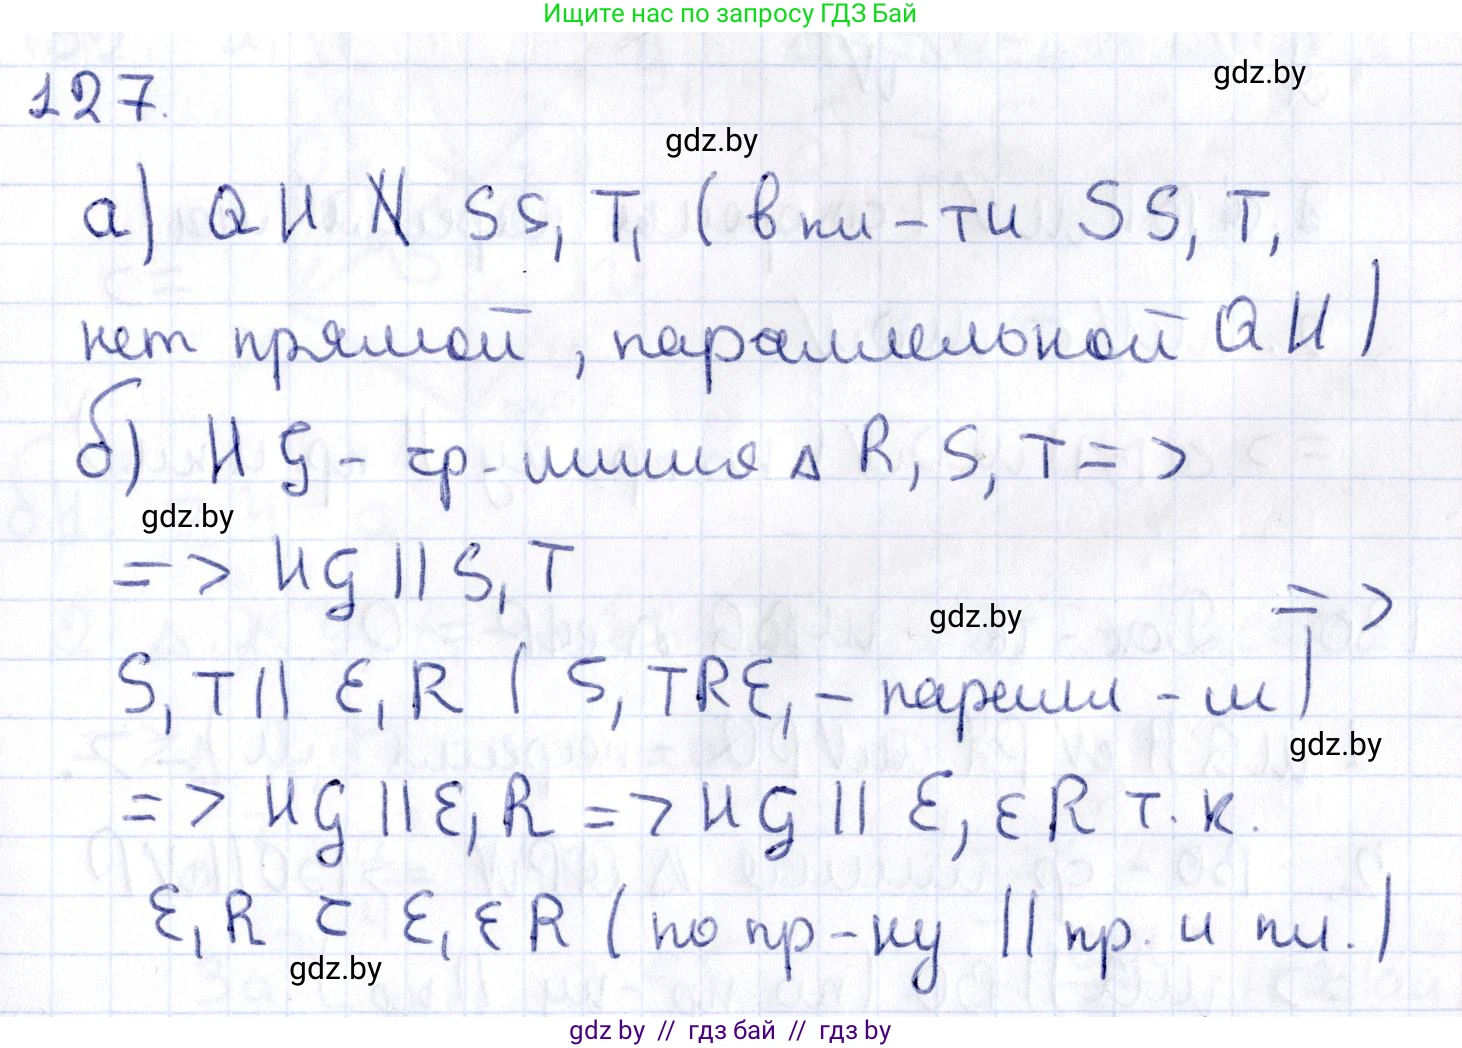 Ищите нас по запросу ГДЗ Бай
127.
gdz.by
gdz.by
а) QH ∦ SS₁T₁ (в пл-ти SS₁T₁
нет прямой, параллельной QH)
б) HG - ср. линия Δ R₁S₁T =>
gdz.by
=> HG || S₁T
gdz.by
=>
S₁T || E₁R (S₁TRE₁ - паралл-м)
gdz.by
=> HG || E₁R => HG || E₁ER т.к.
E₁R ⊂ E₁ER (по пр-ку || пр. и пл.)
gdz.by
gdz by // гдз бай // гдз by